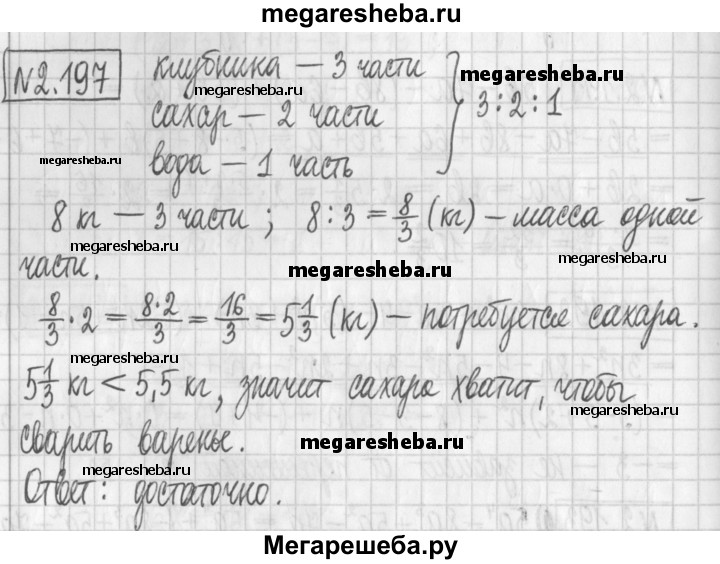 megaresheba.ru
№2.197 клубника — 3 части
megaresheba.ru
megaresheba.ru
сахар — 2 части } 3:2:1
megaresheba.ru
вода — 1 часть
8 кг — 3 части; 8:3 = 8/3 (кг) — масса одной
megaresheba.ru
megaresheba.ru
части.
megaresheba.ru
8/3 · 2 = 8·2/3 = 16/3 = 5 1/3 (кг) — потребуется сахара.
megaresheba.ru
5 1/3 кг < 5,5 кг, значит сахара хватит, чтобы
megaresheba.ru
сварить варенье.
megaresheba.ru
megaresheba.ru
Ответ: достаточно.
Мегарешеба.ру